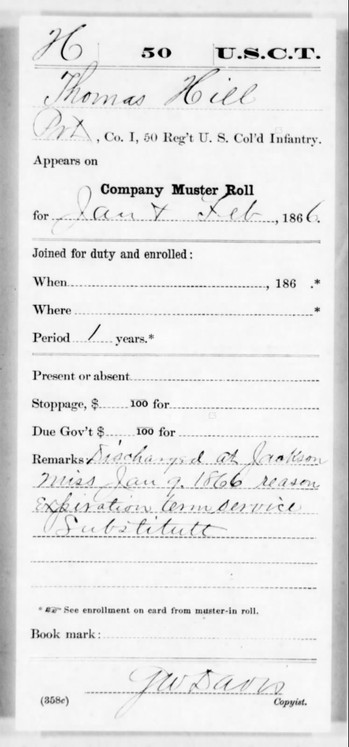 H 50 U.S.C.T.
Thomas Hill
Pvt, Co. I, 50 Reg't U. S. Col'd Infantry.
Appears on
Company Muster Roll
for Jan & Feb, 1866.
Joined for duty and enrolled:
When, 186 .*
Where *
Period 1 years.*
Present or absent
Stoppage, $ 100 for
Due Gov't $ 100 for
Remarks: Discharged at Jackson
Miss Jan 9. 1866 reason
expiration term service
Substitute
* ☞ See enrollment on card from muster-in roll.
Book mark:
GW Davis
(358c) Copyist.